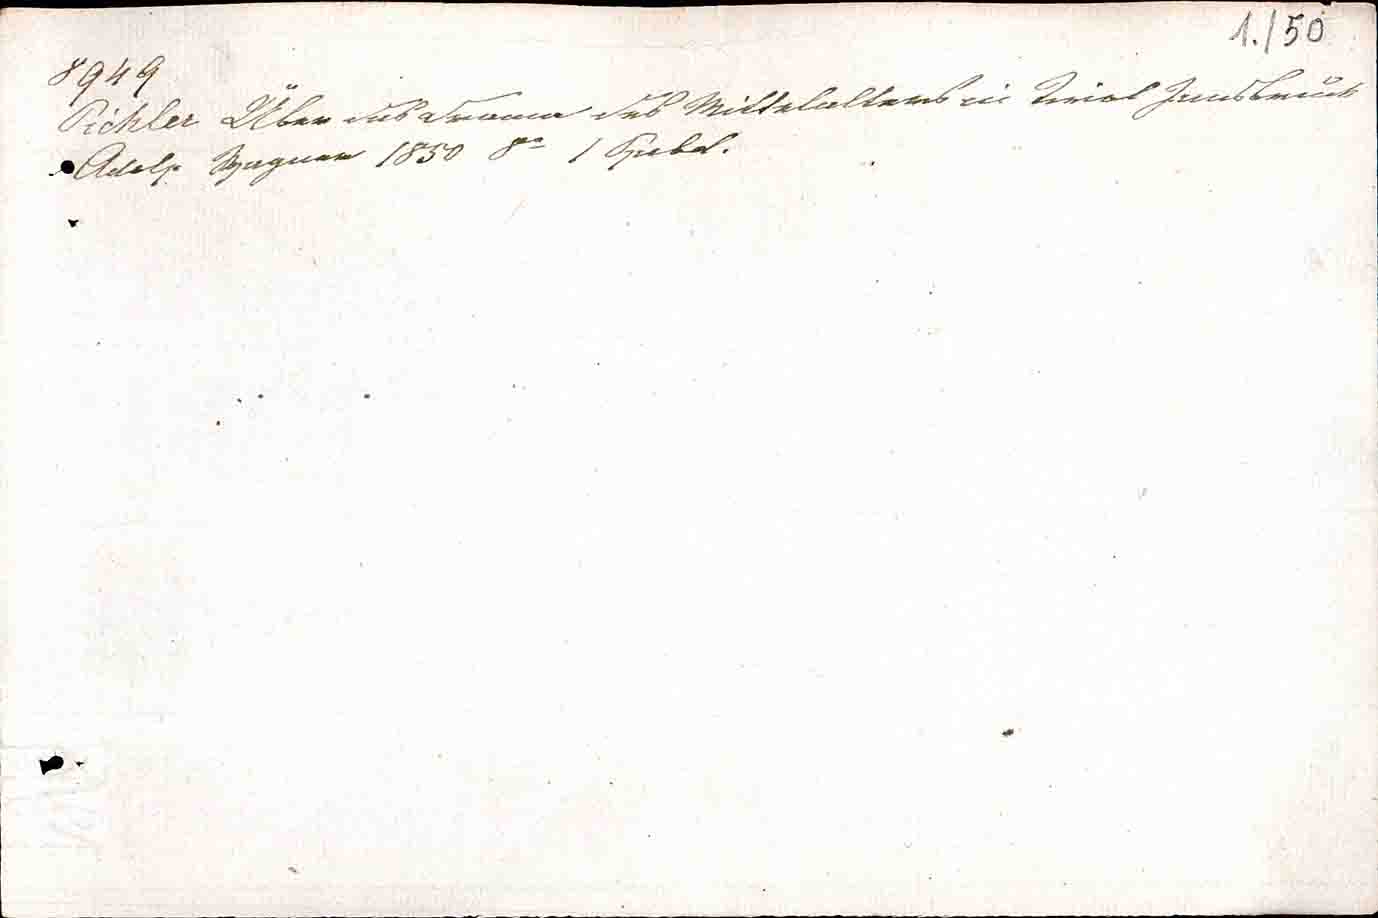 1./50
8949
Pichler Über das Drama des Mittelalters in Tirol Innsbruck
Adolf Wagner 1850 8°